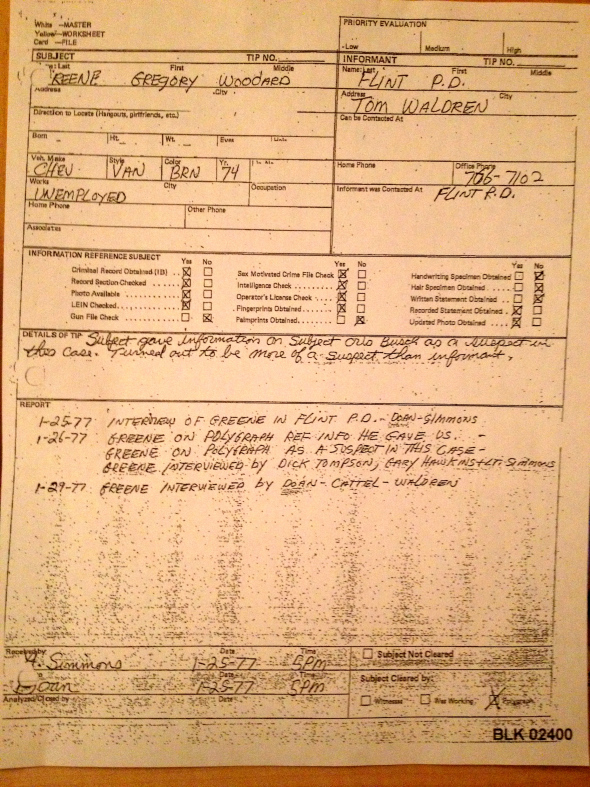 White —MASTER
Yellow—WORKSHEET
Card —FILE
PRIORITY EVALUATION
Low Medium High
SUBJECT TIP NO.
Last First Middle
REENE GREGORY WOODARD
Address City
Direction to Locate (Hangouts, girlfriends, etc.)
Born Ht. Wt. Eyes
Veh. Make Style Color Yr.
CHEV VAN BRN 74
Works City Occupation
UNEMPLOYED
Home Phone Other Phone
Associates
INFORMANT TIP NO.
Name: Last First Middle
FLINT P.D.
Address City
TOM WALDREN
Can be Contacted At
Home Phone Office Phone
766-7102
Informant was Contacted At FLINT P.D.
INFORMATION REFERENCE SUBJECT
Yes No
Criminal Record Obtained (ID) X
Record Section Checked X
Photo Available X
LEIN Checked X
Gun File Check X
Yes No
Sex Motivated Crime File Check X
Intelligence Check X
Operator's License Check X
Fingerprints Obtained X
Palmprints Obtained X
Yes No
Handwriting Specimen Obtained X
Hair Specimen Obtained X
Written Statement Obtained X
Recorded Statement Obtained X
Updated Photo Obtained X
DETAILS OF TIP Subject gave information on Subject Chris Busch as a suspect in
this case. Turned out to be more of a suspect than informant.
REPORT
1-25-77 INTERVIEW OF GREENE IN FLINT P.D. - DOAN-SIMMONS
1-26-77 GREENE ON POLYGRAPH REF INFO HE GAVE US. -
GREENE ON POLYGRAPH AS A SUSPECT IN THIS CASE -
GREENE INTERVIEWED by DICK TOMPSON, GARY HAWKINS + Lt. Simmons
1-29-77 GREENE INTERVIEWED by DOAN - CATTEL - WALDREN
Received by Date Time
Simmons 1-25-77 5PM
Doan 1-25-77 5PM
Analyzed/Closed by Date
Subject Not Cleared
Subject Cleared by:
Witnesses Was Working X Polygraph
BLK 02400